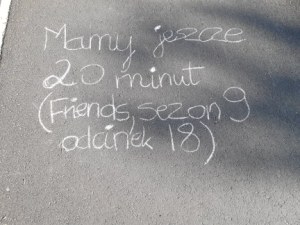 Mamy jeszcze
20 minut
(Friends, sezon 9
odcinek 18)